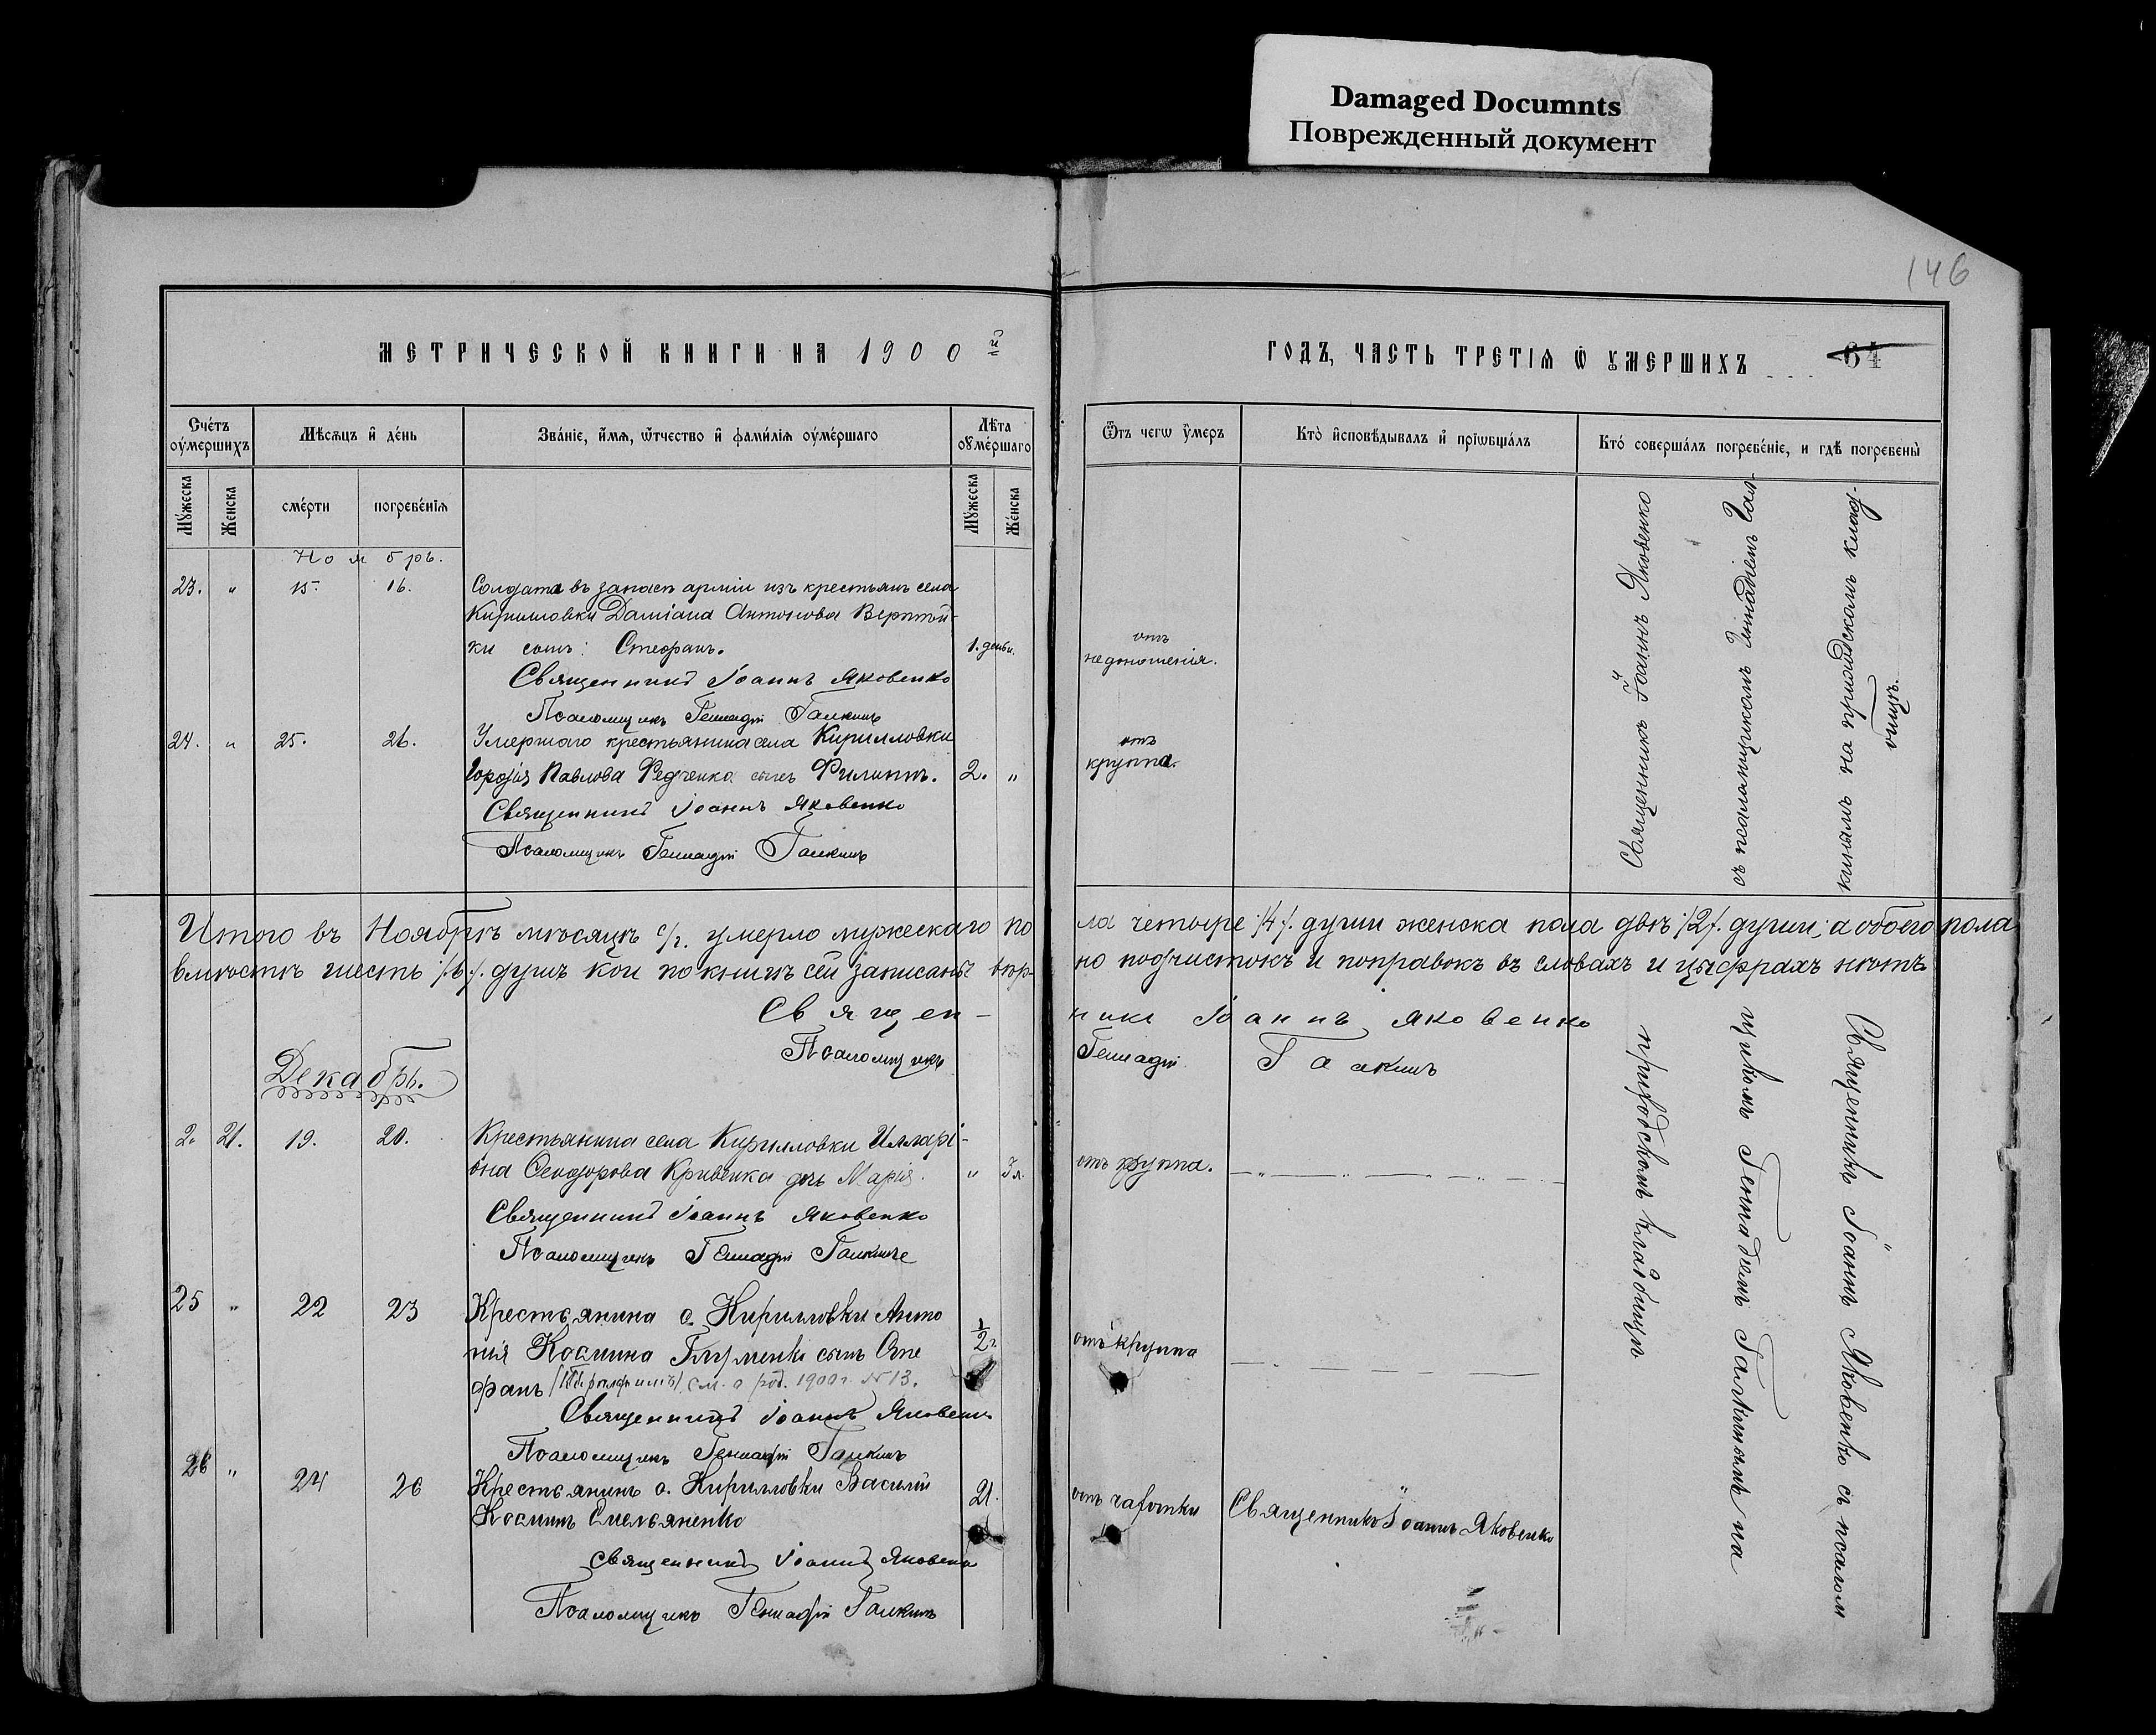 Damaged Documnts
Поврежденный документ
146
МЕТРИЧЕСКОЙ КНИГИ НА 1900 й
ГОДЪ, ЧАСТЬ ТРЕТІЯ Ѿ УМЕРШИХЪ 64
Счетъ оумершихъ
Мѣсяцъ и день
Званіе, имя, ѿтчество и фамилія оумершаго
Лѣта оумершаго
Ѿтъ чегѡ умеръ
Кто исповѣдывалъ и пріѡбщалъ
Кто совершалъ погребеніе, и гдѣ погребены
Мужеска
Женска
смерти
погребенія
Мужеска
Женска
Ноябрь.
23. " 15. 16. Солдата въ запасѣ арміи изъ крестьянъ села
Кирилловки Даміана Антонова
ки сынъ: Стефанъ. 1. день. отъ недоношенія.
Священникъ Іоаннъ Яковенко
Псаломщикъ Геннадій Галкинъ
24. " 25. 26. Умершаго крестьянина села Кирилловки
Павлова Федченка сынъ Филиппъ. 2. " отъ круппа.
Священникъ Іоаннъ Яковенко
Псаломщикъ Геннадій Галкинъ
Священникъ Іоаннъ Яковенко
съ псаломщикомъ Геннадіемъ Гал-
кинымъ на приходскомъ клад-
бищѣ.
Итого въ Ноябрѣ мѣсяцѣ с/г. умерло мужескаго по
ла четыре /4/. души женска пола двѣ /2/. души; а обоего пола
вмѣстѣ шесть /6/. душъ кои по книгѣ сей записаны вѣр-
но подчистокъ и поправокъ въ словахъ и цыфрахъ нѣтъ
Священ-
никъ Іоаннъ Яковенко
Псаломщикъ
Геннадій Галкинъ
Декабрь.
21. 19. 20. Крестьянина села Кирилловки Иларі-
она Феодорова Кривенка дочь Марія. " 3 л. отъ круппа.
Священникъ Іоаннъ Яковенко
Псаломщикъ Геннадій Галкинъ
25 " 22 23 Крестьянина с. Кирилловки Анто
нія Космина сынъ Сте 1/2 г. отъ круппа
фанъ см. о род. 1900 г. № 13.
Священникъ Іоаннъ Яковенко
Псаломщикъ Геннадій Галкинъ
26 " 24 26 Крестьянинъ с. Кирилловки Василій 21. отъ чахотки Священникъ Іоаннъ Яковенко
Косминъ Емельяненко
Священникъ Іоаннъ Яковенко
Псаломщикъ Геннадій Галкинъ
Священникъ Іоаннъ Яковенко съ псалом
щикомъ Геннадіемъ Галкинымъ на
приходскомъ кладбищѣ